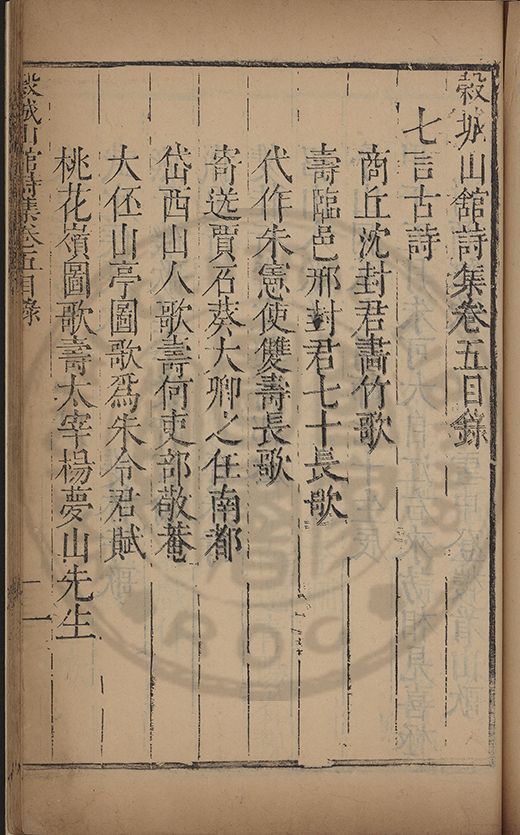 穀城山館詩集卷五目錄
七言古詩
商丘沈封君畵竹歌
壽臨邑邢封君七十長歌
代作朱憲使雙壽長歌
寄送賈石葵大卿之任南都
岱西山人歌壽何吏部敬菴
大伾山亭圖歌爲朱令君賦
桃花嶺圖歌壽太宰楊夢山先生
穀城山館詩集卷五目錄
一